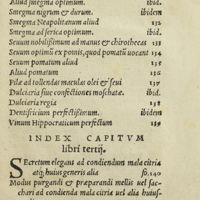 Aliud smegma optimum. ibid.
Smegma nigrum & durum. ibidem
Smegma Neapolitanum aliud 132
Smegma ad serica optimum. ibid.
Seuum nobilissimum ad manus & chirothecas 133
Seuum optimū ex pomis, quod pomatū uocant 134
Seuum pomatum aliud 135
Aliud pomatum 136
Pilæ ad tollendas maculas olei & seui 137
Dulciaria siue confectiones moschatæ. ibid.
Dulciaria regia 138
Dentifricium perfectissimum. ibidem
Vinum Hippocraticum perfectum 139
INDEX CAPITVM
libri tertij.
Secretum elegans ad condiendum mala citria
atq; huius generis alia fo. 140
Modus purgandi & præparandi mellis uel sac
chari ad condienda mala citria uel alia huius-